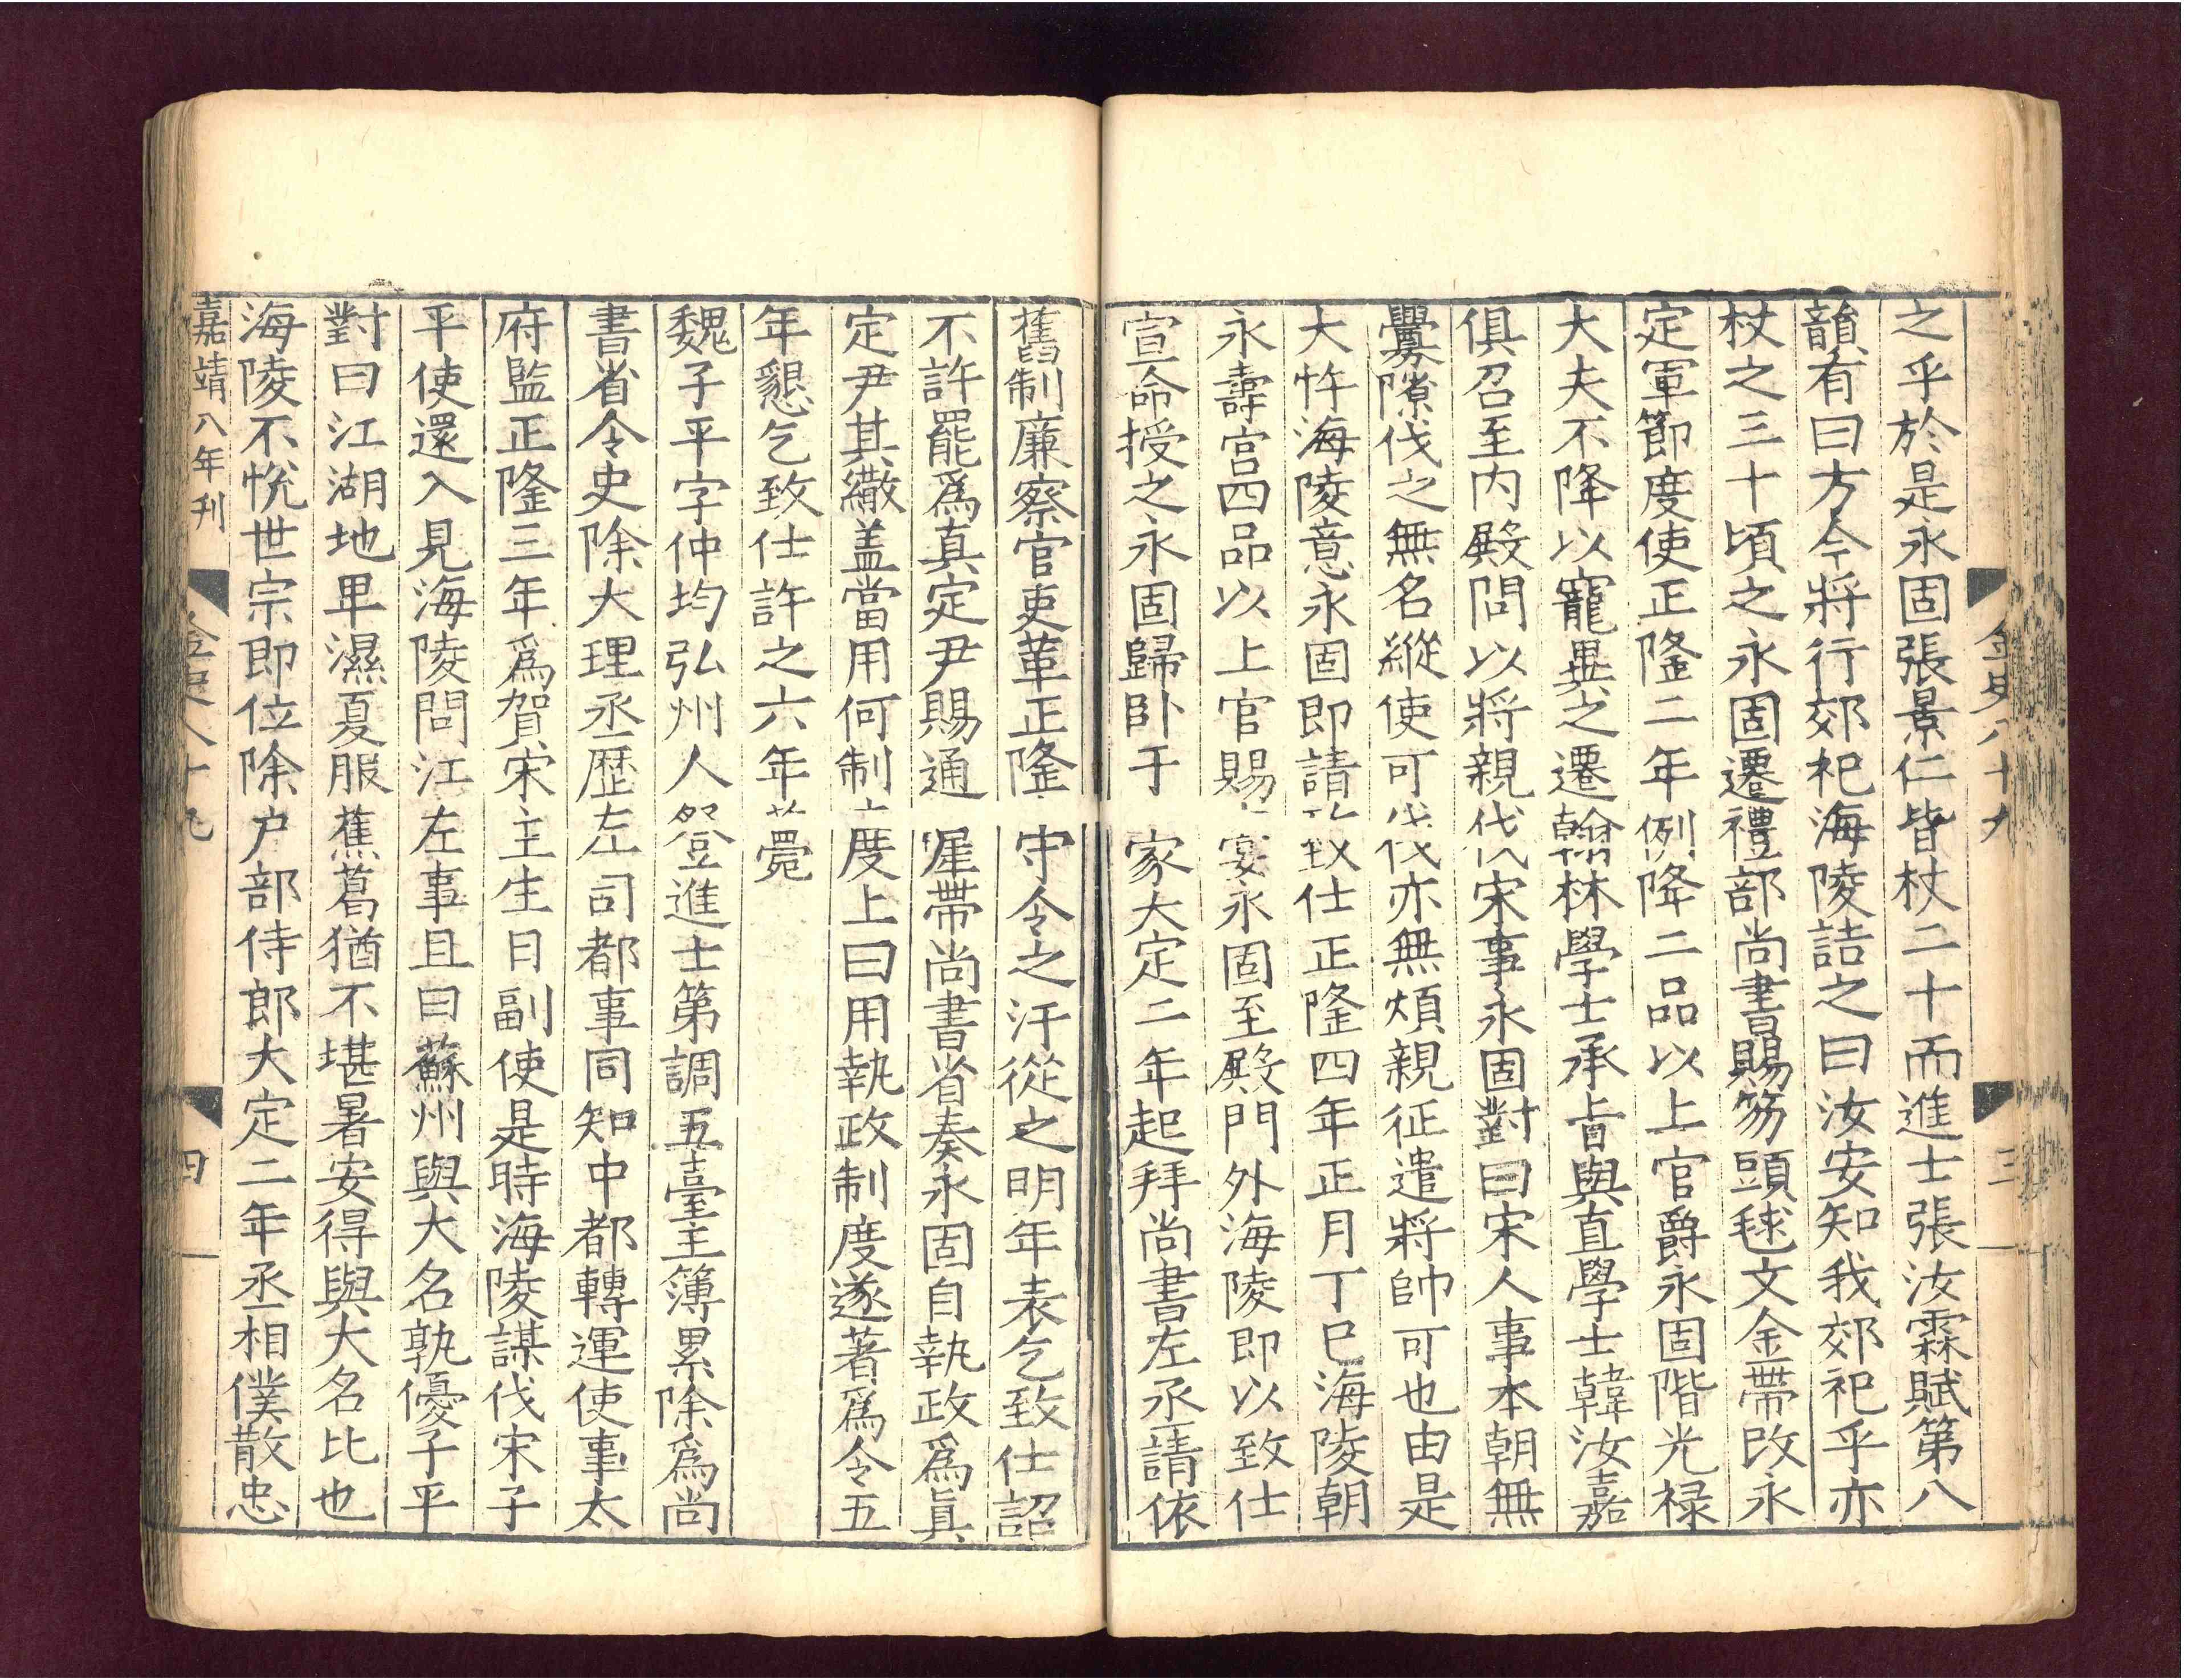 金史八十九
三
之乎於是永固張景仁皆杖二十而進士張汝霖賦第八
韻有曰方今將行郊祀海陵詰之曰汝安知我郊祀乎亦
杖之三十頃之永固遷禮部尚書賜笏頭毬文金帶改永
定軍節度使正隆二年例降二品以上官爵永固階光禄
大夫不降以寵異之遷翰林學士承旨與直學士韓汝嘉
俱召至内殿問以將親伐宋事永固對曰宋人事本朝無
釁隙伐之無名縱使可伐亦無煩親征遣將帥可也由是
大忤海陵意永固即請致仕正隆四年正月丁巳海陵朝
永壽宮四品以上官賜宴永固至殿門外海陵即以致仕
宣命授之永固歸卧于家大定二年起拜尚書左丞請依
舊制廉察官吏革正隆守令之汙從之明年表乞致仕詔
不許罷爲真定尹賜通犀帶尚書省奏永固自執政爲真
定尹其繖盖當用何制度上曰用執政制度遂著爲令五
年懇乞致仕許之六年薨
魏子平字仲均弘州人登進士第調五臺主簿累除爲尚
書省令史除大理丞歷左司都事同知中都轉運使事太
府監正隆三年爲賀宋主生日副使是時海陵謀伐宋子
平使還入見海陵問江左事且曰蘇州與大名孰優子平
對曰江湖地卑濕夏服蕉葛猶不堪暑安得與大名比也
海陵不悅世宗即位除户部侍郎大定二年丞相僕散忠
嘉靖八年刊
金史八十九
四